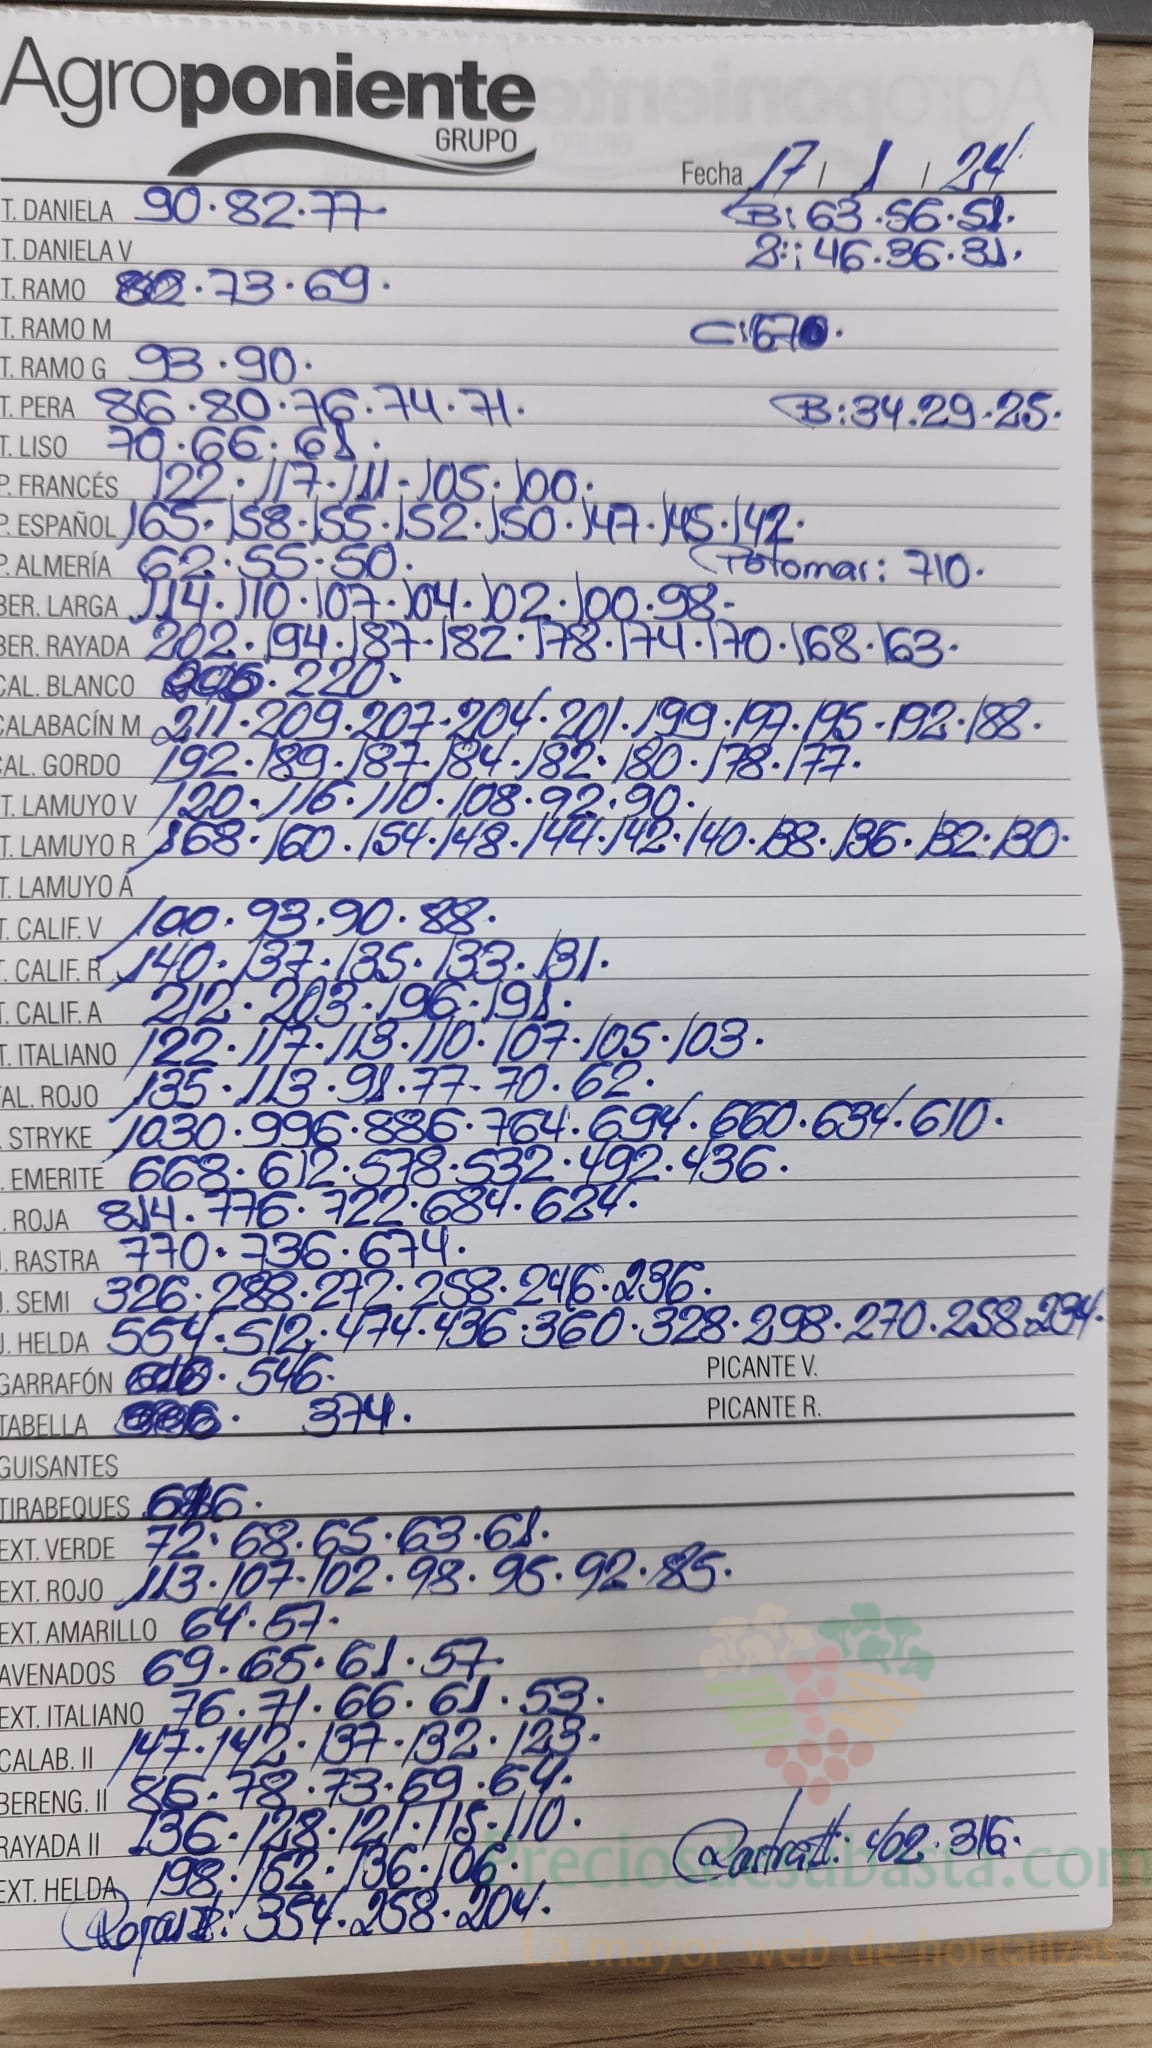 Agroponiente
GRUPO
Fecha 17 / 1 / 24
T. DANIELA 90·82·77 B: 63·56·51·
T. DANIELA V 2: 46·36·31·
T. RAMO 82·73·69·
T. RAMO M C: 670·
T. RAMO G 93·90·
T. PERA 86·80·76·74·71· B: 34·29·25·
T. LISO 70·66·61·
P. FRANCÉS 122·117·111·105·100·
P. ESPAÑOL 165·158·155·152·150·147·145·142·
P. ALMERÍA 62·55·50· 710·
BER. LARGA 114·110·107·104·102·100·98·
BER. RAYADA 202·194·187·182·178·174·170·168·163·
CAL. BLANCO 220·
CALABACÍN M 211·209·207·204·201·199·197·195·192·188·
CAL. GORDO 192·189·187·184·182·180·178·177·
T. LAMUYO V 120·116·110·108·92·90·
T. LAMUYO R 168·160·154·148·144·142·140·138·136·132·130·
T. LAMUYO A
T. CALIF. V 100·93·90·88·
T. CALIF. R 140·137·135·133·131·
T. CALIF. A 212·203·196·191·
T. ITALIANO 122·117·113·110·107·105·103·
TAL. ROJO 135·113·91·77·70·62·
. STRYKE 1030·996·886·764·694·660·634·610·
. EMERITE 668·612·578·532·492·436·
. ROJA 814·776·722·684·624·
J. RASTRA 770·736·674·
J. SEMI 326·288·272·258·246·236·
J. HELDA 554·512·474·436·360·328·298·270·258·234·
GARRAFÓN 546· PICANTE V.
TABELLA 374· PICANTE R.
GUISANTES
TIRABEQUES
EXT. VERDE 72·68·65·63·61·
EXT. ROJO 113·107·102·98·95·92·85·
EXT. AMARILLO 64·57·
AVENADOS 69·65·61·57·
EXT. ITALIANO 76·71·66·61·53·
CALAB. II 147·142·137·132·123·
BERENG. II 86·78·73·69·64·
RAYADA II 136·128·121·115·110·
EXT. HELDA 198·152·136·106· 402·316·
Roja II: 354·258·204·
Preciosdesubasta.com
La mayor web de hortalizas